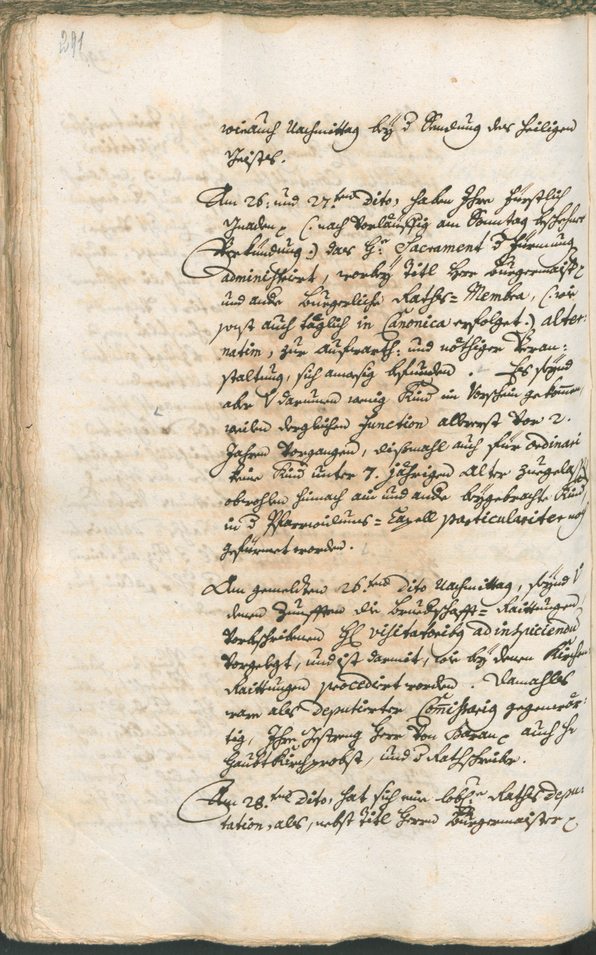 291
wie auch Nachmittag beÿ d Sendung des heiligen
Geistes.
Am 26: und 27.ten Dito, haben Ihre Fürstlich
Gnaden (: nach vorläuffig am Sontag beschehner
Verkündung :) das H: Sacrament d Fürmung
administrirt, worbeÿ Titl Herr Burgermaister
und ande Burgerliche Raths= Membra, (: wie
sonst auch täglich in Canonica erfolget :) alter:
natim, zur Aufwarth: und nöthiger Veran:
staltung, sich befunden. Es seÿnd
aber darumen wenig Kind im Vorschein gekommen,
weilen derglichen Function alberst vor 2.
Jahren vorgangen, dißmahl auch für ordinari
keine Kind unter 7. Jährigen Alter zuegelassen
obwohlen hinnach ain und ande beÿgebrachte Kind
in d Pfarrwidums= Capell particulariter noch
gefürmet worden.
Am gemeldten 26.ten dito Nachmittag, seÿnd
denen Zunfften die Bruedschafft= Raittungen
vorbeschribenen H visitatoribus ad inspiciendum
vorgelegt, und ist darmit, wie beÿ denen Kirchen
Raittungen procedirt worden. Damahls
ware als deputirter Comißarius gegenwör:
tig, Ihre Gestreng Herr von auch H
Haubtkirchprobst, und d Rathschreiber.
Am 28.ten Dito, hat sich eine lobl: Raths depu:
tation, als, nebst Titl Herrn Burgermaister